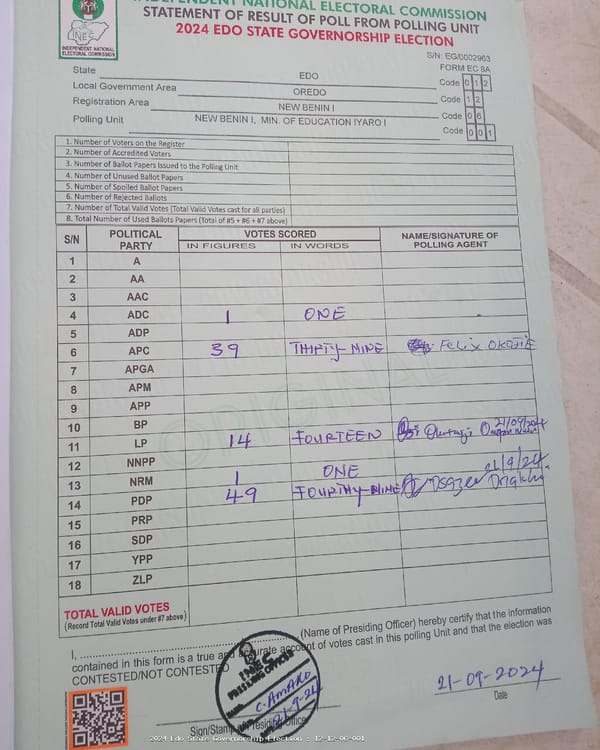 INDEPENDENT NATIONAL ELECTORAL COMMISSION
STATEMENT OF RESULT OF POLL FROM POLLING UNIT
2024 EDO STATE GOVERNORSHIP ELECTION
INEC
INDEPENDENT NATIONAL
ELECTORAL COMMISSION
S/N: EG/0002963
FORM EC 8A
State EDO Code 0 1 2
Local Government Area OREDO Code 1 2
Registration Area NEW BENIN I Code 0 6
Polling Unit NEW BENIN I, MIN. OF EDUCATION IYARO I Code 0 0 1
1. Number of Voters on the Register
2. Number of Accredited Voters
3. Number of Ballot Papers Issued to the Polling Unit
4. Number of Unused Ballot Papers
5. Number of Spoiled Ballot Papers
6. Number of Rejected Ballots
7. Number of Total Valid Votes (Total Valid Votes cast for all parties)
8. Total Number of Used Ballots Papers (Total of #5 + #6 + #7 above)
S/N POLITICAL PARTY VOTES SCORED NAME/SIGNATURE OF POLLING AGENT
IN FIGURES IN WORDS
1 A
2 AA
3 AAC
4 ADC 1 ONE
5 ADP
6 APC 39 THIRTY-NINE Felix OKOJIE
7 APGA
8 APM
9 APP
10 BP 21/09/2024
11 LP 14 FOURTEEN
12 NNPP
13 NRM 1 ONE 21/9/24
14 PDP 49 FOURTHY-NINE
15 PRP
16 SDP
17 YPP
18 ZLP
TOTAL VALID VOTES
(Record Total Valid Votes under #7 above)
ORIGINAL
I, (Name of Presiding Officer) hereby certify that the information
contained in this form is a true and accurate account of votes cast in this polling Unit and that the election was
CONTESTED/NOT CONTESTED
INEC
PRESIDING OFFICER
C. AMARO
21-9-24
Sign/Stamp of Presiding Officer
21-09-2024
Date
2024 Edo State Governorship Election : 12-12-06-001